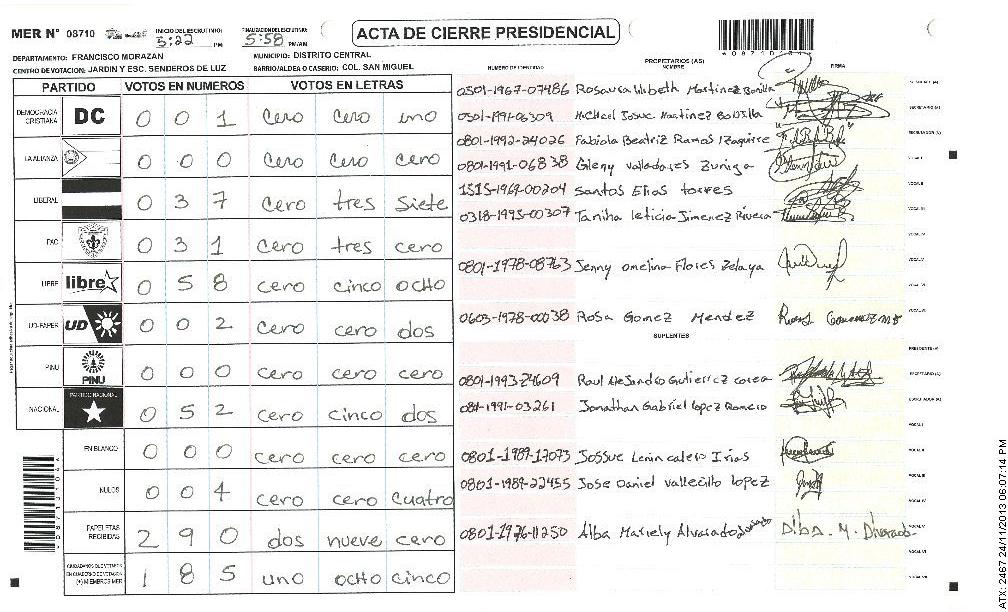 MER N° 08710 INICIO DEL ESCRUTINIO: 5:22 PM FINALIZACION ESCRUTINIO: 5:58 PM/AM ACTA DE CIERRE PRESIDENCIAL
DEPARTAMENTO: FRANCISCO MORAZAN MUNICIPIO: DISTRITO CENTRAL
CENTRO DE VOTACION: JARDIN Y ESC. SENDEROS DE LUZ BARRIO/ALDEA O CASERIO: COL. SAN MIGUEL
PARTIDO VOTOS EN NUMEROS VOTOS EN LETRAS
DEMOCRACIA CRISTIANA DC 0 0 1 Cero Cero uno
LA ALIANZA 0 0 0 Cero Cero cero
LIBERAL 0 3 7 Cero tres Siete
PAC 0 3 1 Cero tres cero
LIBRE libre 0 5 8 cero cinco ocho
UD-FAPER UD 0 0 2 cero cero dos
PINU PINU 0 0 0 cero cero cero
NACIONAL PARTIDO NACIONAL 0 5 2 cero cinco dos
EN BLANCO 0 0 0 cero cero cero
NULOS 0 0 4 cero cero cuatro
PAPELETAS RECIBIDAS 2 9 0 dos nueve cero
CIUDADANOS QUE VOTARON EN CUADERNO DE VOTACION (+) MIEMBROS MER 1 8 5 uno ocho cinco
NUMERO DE IDENTIDAD PROPIETARIOS (AS) NOMBRE FIRMA
0501-1967-07486 Rosaura Martinez Bonilla
Michael Josue Martinez Bonilla SECRETARIO (A)
0801-1992-24026 Fabiola Beatriz Ramos Izaguirre
0801-1991-06838 Gleny Valladares Zuniga VOCAL I
1515-1969-00204 Santos Elias torres VOCAL II
0318-1995-00307 Taniha leticia Jimenez Rivera VOCAL III
VOCAL IV
0801-1978-08763 Jenny Omelina Flores Zelaya VOCAL V
VOCAL VI
0603-1978-00038 Rosa Gomez Mendez
SUPLENTES
0801-1993-24609 Raul Alejandro Gutierrez corea
0801-1991-03261 Jonathan Gabriel lopez Romero
VOCAL I
0801-1989-17073 Jossue Lenin calero Irias VOCAL II
0801-1989-22455 Jose Daniel Vallecillo lopez VOCAL III
VOCAL IV
0801-1976-11250 Alba Mariely Alvarado VOCAL V
VOCAL VI
ATX: 2467 24/11/2013 06:07:14 PM